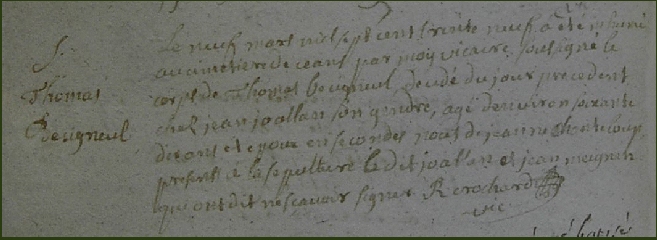 S.
Thomas
Beigneul
Le neuf mars mil sept cent trente neuf a été inhumé
au cimetiere de ceans par moy vicaire soussigné le
corps de Thomas beigneul, decedé du jour precedent
chez jean joallan son gendre, agé d'environ soixante
dix ans et epoux en secondes nopces de jeanne Chanteloup,
presents a la sepulture le dit joallan et jean meignen
qui ont dit ne scavoir signer R crochard
vic